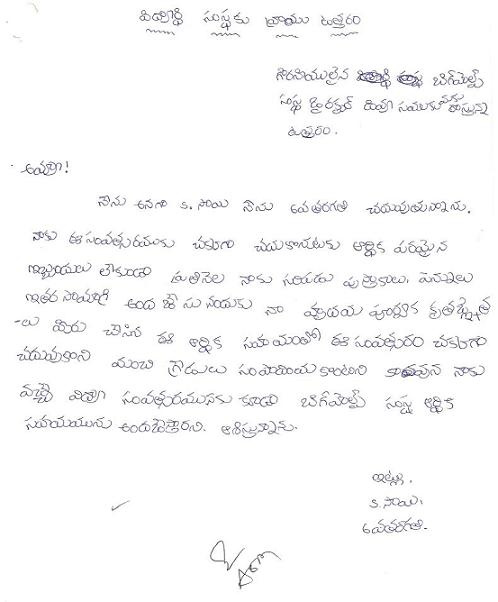 విద్యార్థి సంస్థకు వ్రాయు ఉత్తరం
గౌరవనీయులైన బిగ్‌హెల్ప్
సంస్థ డైరక్టర్ దివ్య సమకు మేము రాస్తున్న
ఉత్తరం.
అయ్యా!
నేను అనగా s. సాయి నేను 6వతరగతి చదువుతున్నాను.
నాకు ఈ సంవత్సరముకు చక్కగా చదుకొనుటకు ఆర్థిక పరమైన
ఇబ్బందులు లేకుండా ప్రతినెల నాకు సరిపడు పుస్తకాలు, పెన్నులు
ఇతర సామాగ్రి అంద జేసినందుకు నా హృదయ పూర్వక కృతజ్ఞత
-లు మీరు చేసిన ఈ ఆర్థిక సహాయంతో ఈ సంవత్సరం చక్కగా
చదువుకొని మంచి గ్రేడులు సంపాదించుకొంటాను కావున నాకు
వచ్చే విద్యా సంవత్సరమునకు కూడా బిగ్‌హెల్ప్ సంస్థ ఆర్థిక
సహయమును అందజేస్తారని. ఆశిస్తున్నాను.
ఇట్లు,
s. సాయి,
6వతరగతి.